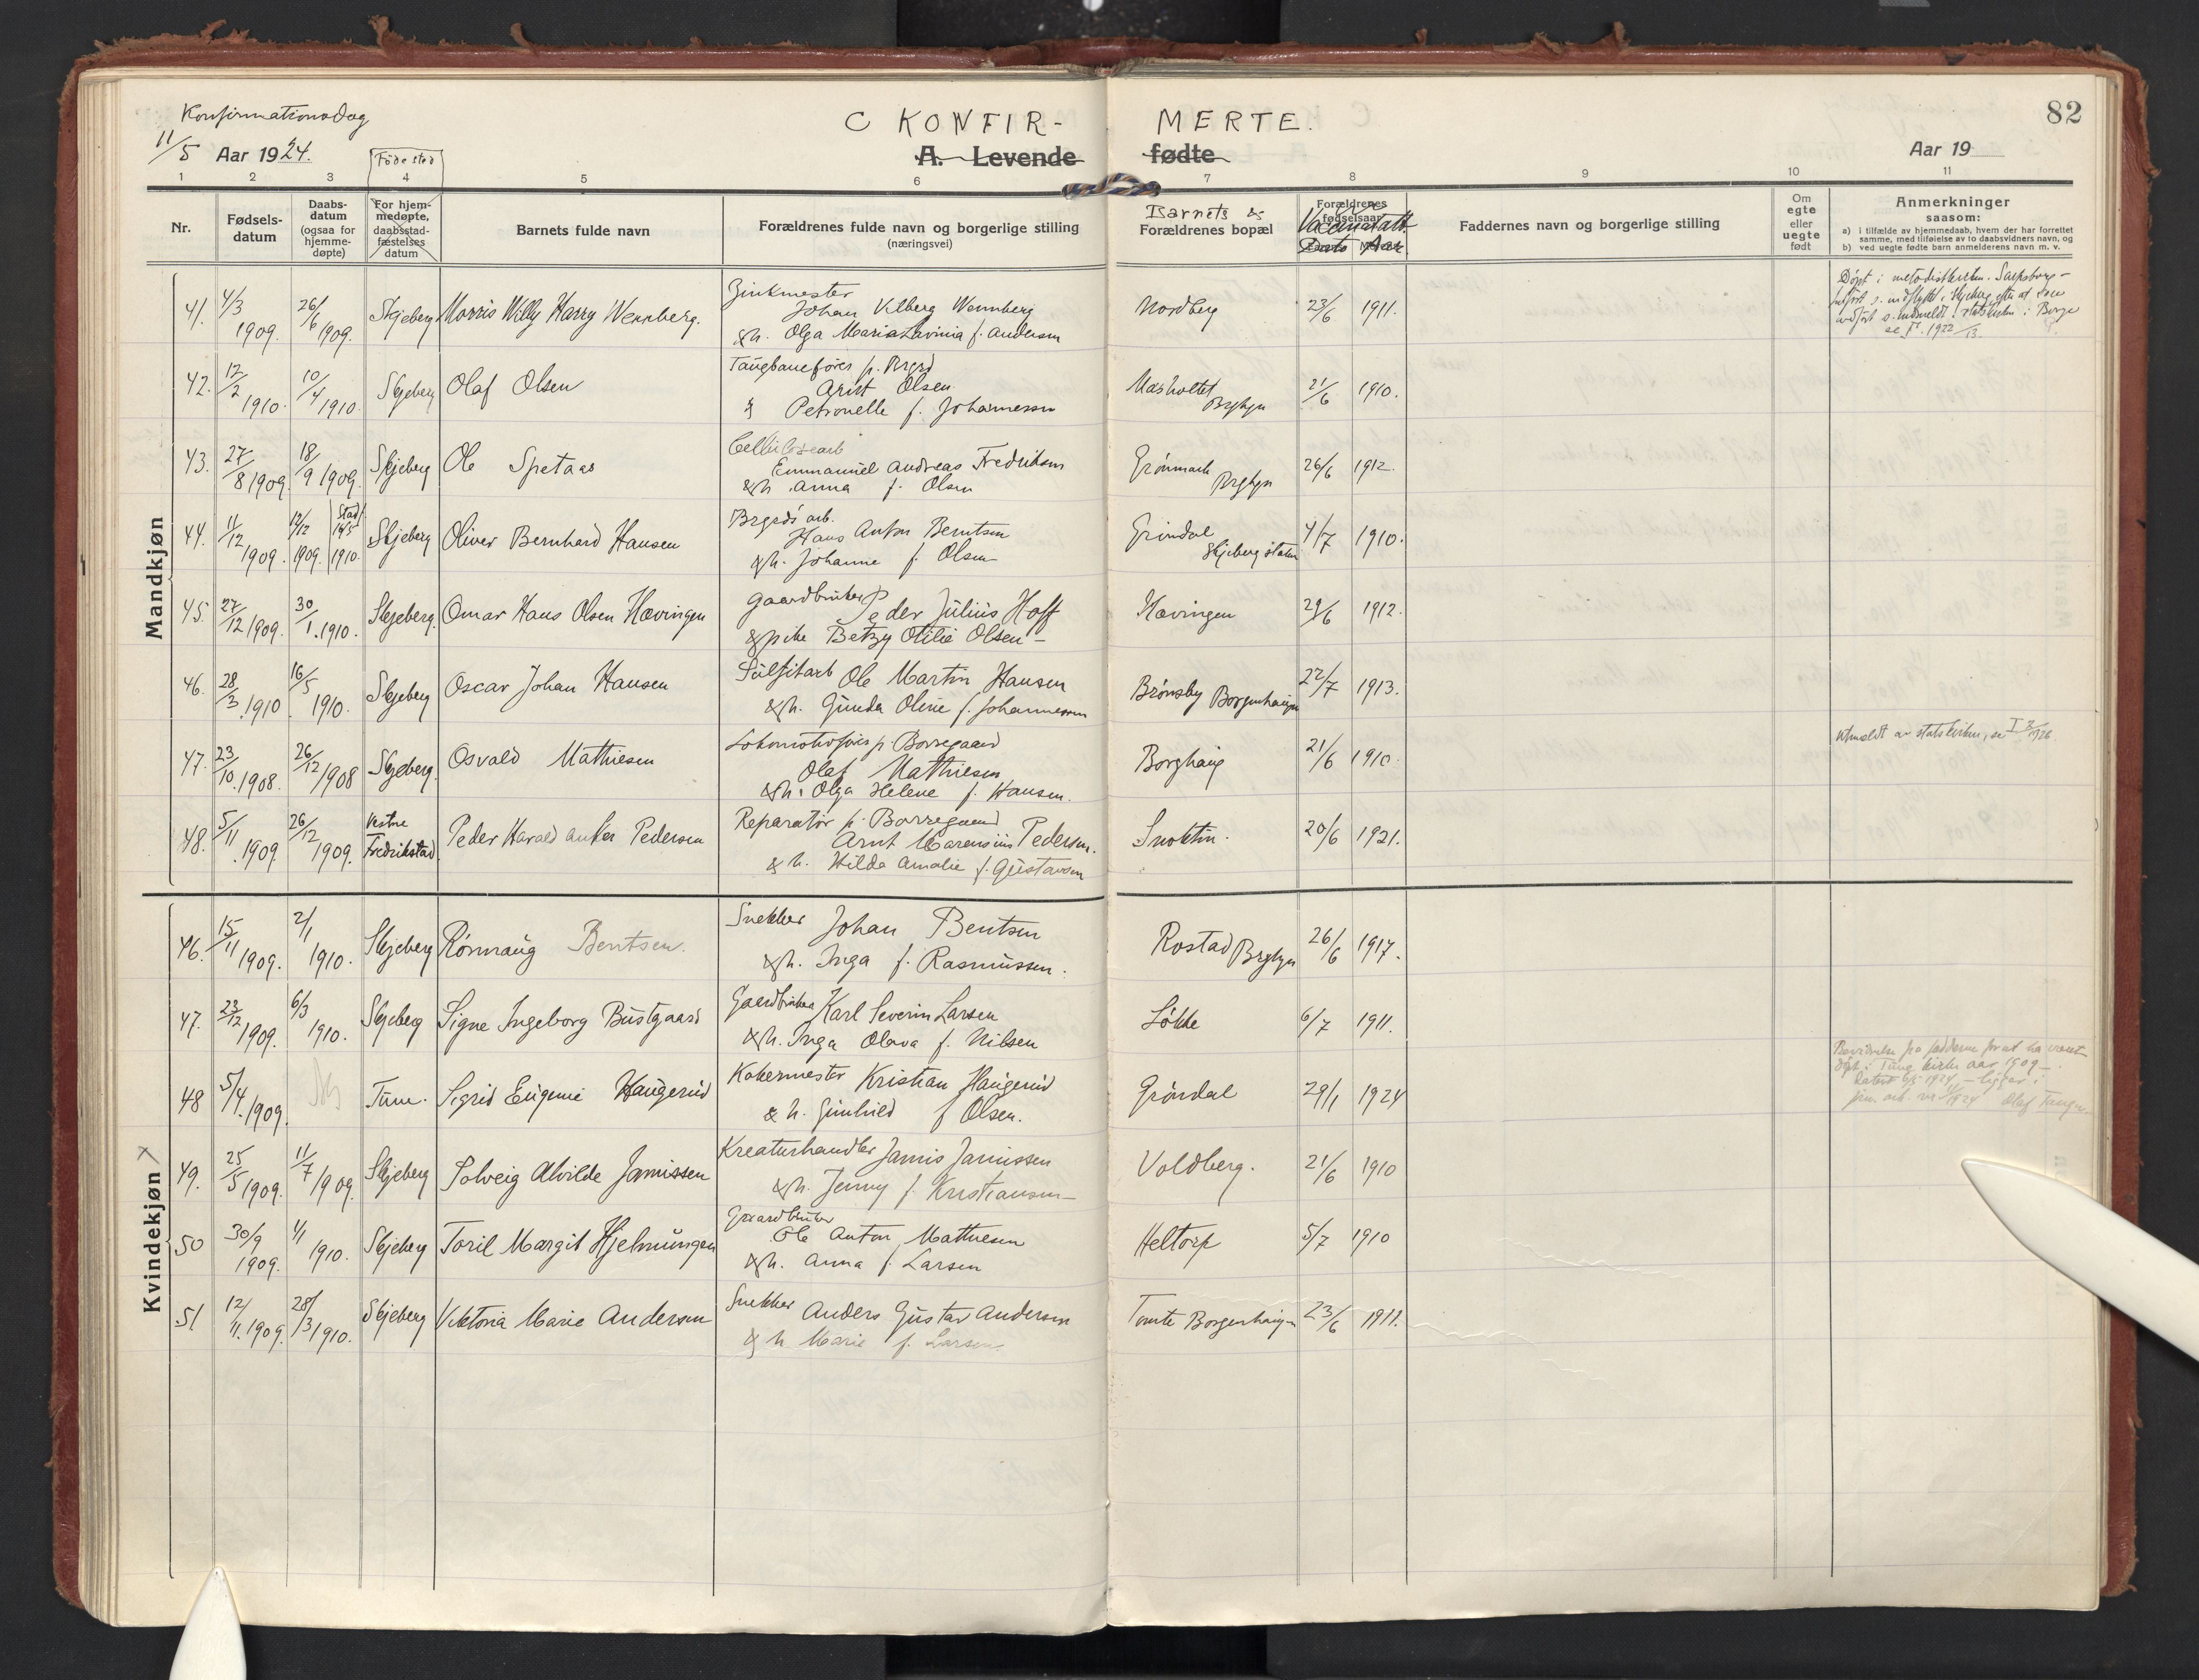 Konfirmationsdag
11/5 Aar 1924.
C KONFIR- MERTE.
A. Levende fødte
82
Aar 19
Føde sted
1 2 3 4 5 6 7 8 9 10 11
Nr.
Fødsels-
datum
Daabs-
datum
(ogsaa for
hjemme-
døpte)
For hjem-
medøpte,
daabsstad-
fæstelses
datum
Barnets fulde navn
Forældrenes fulde navn og borgerlige stilling
(næringsvei)
Barnets &
Forældrenes bopæl
Forældrenes
fødselsaar
Dato Aar.
Faddernes navn og borgerlige stilling
Om
egte
eller
uegte
født
Anmerkninger
saasom:
a) i tilfælde av hjemmedaab, hvem der har forrettet
samme, med tilføielse av to daabsvidners navn, og
b) ved uegte fødte barn anmelderens navn m. v.
Mandkjøn
41. 4/3 1909. 26/6 1909. Skjeberg Morris Willy Harry Wennberg.
Johan Vilberg Wennberg
&h. Olga Maria Lavinia f. Andersen
Nordberg 23/6 1911.
Døpt i metodistkirken. Sarpsborg -
42. 12/2 1910. 10/4 1910. Skjeberg Olaf Olsen
Taugbanefører p. Brgrd
Arnt Olsen
& Petronelle f. Johannessen
21/6 1910.
43. 27/8 1909. 18/9 1909. Skjeberg Ole Spetaas
Cellulosearb
Emmanuel Andreas Fredriksen
&h Anna f. Olsen
Grønmark 26/6 1912.
44. 11/12 1909. 12/12 1909. Stadf. 14/5 1910. Skjeberg Oliver Bernhard Hansen
Brgrds arb.
Hans Anton Berntsen
&h. Johanne f. Olsen
Grindal
Skjeberg station 4/7 1910.
45. 27/12 1909. 30/1. 1910. Skjeberg. Omar Hans Olsen Hævingen
Gaardbruker Peder Julius Hoff
& pike Betzy Otilie Olsen -
Hævingen 29/6 1912.
46. 28/3 1910. 16/5 1910. Skjeberg Oscar Johan Hansen
Sulfitarb Ole Martin Hansen
&h. Gunda Oline f. Johannessen
Brønsby Borgenhaugen 22/7 1913.
47. 23/10. 1908. 26/12 1908 Skjeberg. Osvald Mathiesen
Lokomotivfører p Borregaard
Olaf Mathiesen
&h. Olga Helene f. Hansen.
Borghaug 21/6 1910.
utmeldt av statskirken, se I 3/1926.
48. 5/11. 1909. 26/12 1909. Vestre
Fredrikstad. Peder Harald Anker Pedersen
Reparatør p. Borregaard
Arnt Marensius Pedersen.
& h. Hilda Amalie f. Gustavsen
20/6 1921.
Kvindekjøn
46. 15/11 1909. 2/1 1910. Skjeberg Rønnaug Bentsen.
Snekker Johan Bentsen
&h. Inga f. Rasmussen.
Rostad 26/6 1917.
47. 23/12 1909. 6/3 1910. Skjeberg Signe Ingeborg Bustgaard
Gaardbruker Karl Severin Larsen
&h. Inga Olava f. Nilsen
Løkke 6/7 1911.
48 5/4. 1909. Tune. Sigrid Eugenie Haugerud
Kokermester Kristian Haugerud
& h. Gunhild f Olsen.
Grøndal 29/1 1924
døpt i Tune kirke aar 1909 -
49. 25/5 1909. 11/7 1909. Skjeberg Solveig Alvilde Jamissen
Kreaturhandler Jamis Jamissen
&h. Jenny f. Kristiansen -
Voldberg. 21/6 1910
50 30/9 1909. 1/1 1910. Skjeberg Toril Margit Hjelmungen
Gaardbruker
Ole Anton Mathiesen
&h. Anna f. Larsen
Heltorp 5/7 1910
51 12/11. 1909. 28/3 1910. Skjeberg Viktoria Marie Andersen
Snekker Anders Gustav Andersen
& h Marie f. Larsen.
Tomte Borgenhaugen 23/6 1911.